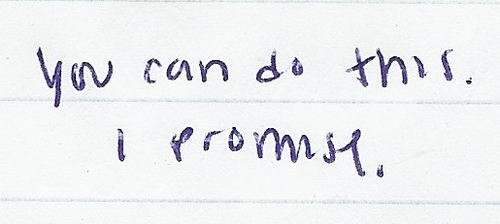 you can do this.
I promise.